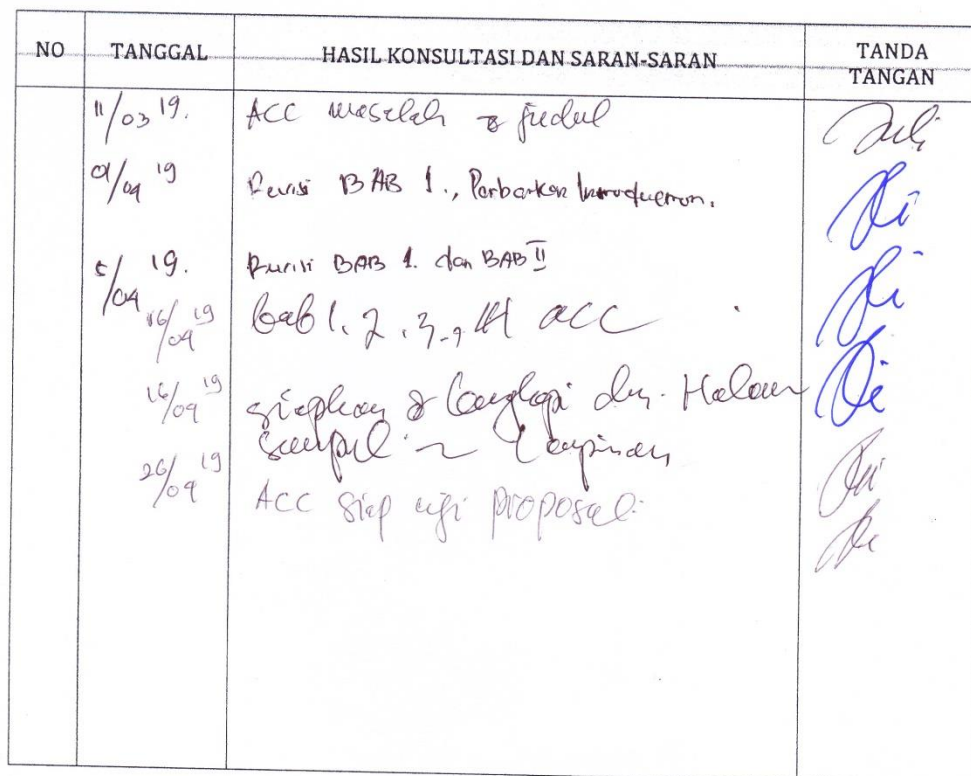 NO TANGGAL HASIL KONSULTASI DAN SARAN-SARAN TANDA TANGAN
11/03 19. ACC masalah & judul
01/04 19 Revisi BAB 1., Perbaikan
5/04 19. Revisi BAB 1. dan BAB II
16/04 19 bab 1. 2. 3., acc
16/04 19 siapkan & lengkapi dg. Halaman
Sampul Lampiran
26/04 19 ACC siap uji proposal.